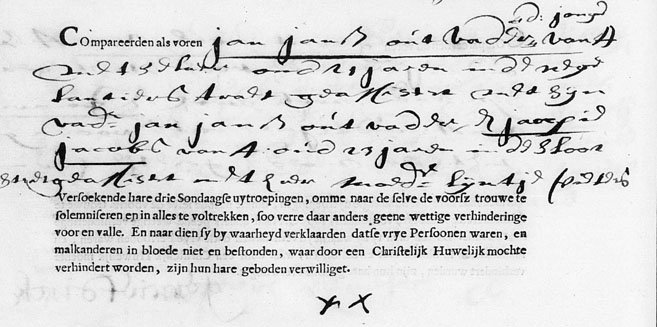 de jonge
Compareerden als voren jan jansz out vader van A
oud 25 jaren in de
straet geassisteert met zijn
vader jan jansz out vader & jaepie
jacobs van A. oud 23 jaren in de Sloot
straet geassisteert met haer moeder lijntje
Versoekende hare drie Sondaagse uytroepingen, omme naar de selve de voorsz trouwe te
solemniseren en in alles te voltrekken, soo verre daar anders geene wettige verhinderinge
voor en valle. En naar dien sy by waarheyd verklaarden datse vrye Persoonen waren, en
malkanderen in bloede niet en bestonden, waar door een Christelijk Huwelijk mochte
verhindert worden, zijn hun hare geboden verwilliget.